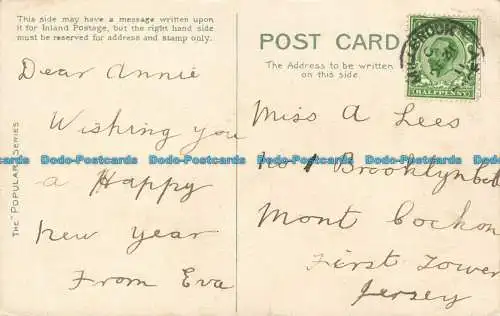 This side may have a message written upon
it for Inland Postage, but the right hand side
must be reserved for address and stamp only.
POST CARD
The Address to be written
on this side.
HALFPENNY
THE "POPULAR" SERIES
Dear Annie
Wishing you
a Happy
New Year
From Eva
Miss A Lees
No 1 Brooklyn
Mont Cochon
First Tower
Jersey
Dodo-Postcards Dodo-Postcards Dodo-Postcards Dodo-Postcards